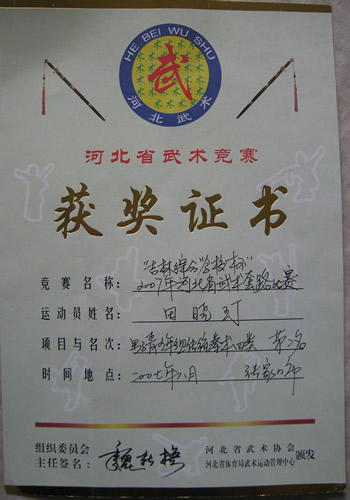 HE BEI WU SHU
武
河北武术
河北省武术竞赛
获奖证书
竞赛名称：2007年河北省武术套路比赛
运动员姓名：田晓
项目与名次：男子青少年组传统拳术四类 第2名
时间地点：二00七年八月 张家口市
组织委员会
主任签名：
河北省武术协会
河北省体育局武术运动管理中心 颁发